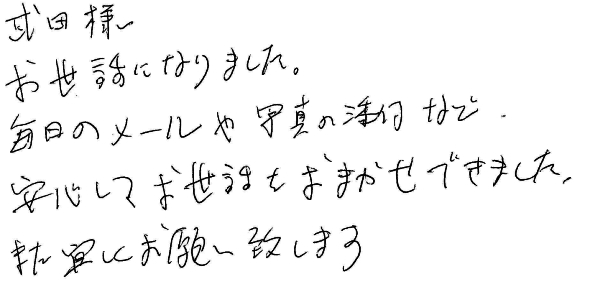 武田様
お世話になりました。
毎日のメールや写真の添付など
安心してお世話をおまかせできました。
また宜しくお願い致します